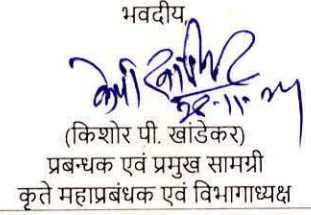 भवदीय,
(किशोर पी. खांडेकर)
प्रबन्धक एवं प्रमुख सामग्री
कृते महाप्रबंधक एवं विभागाध्यक्ष